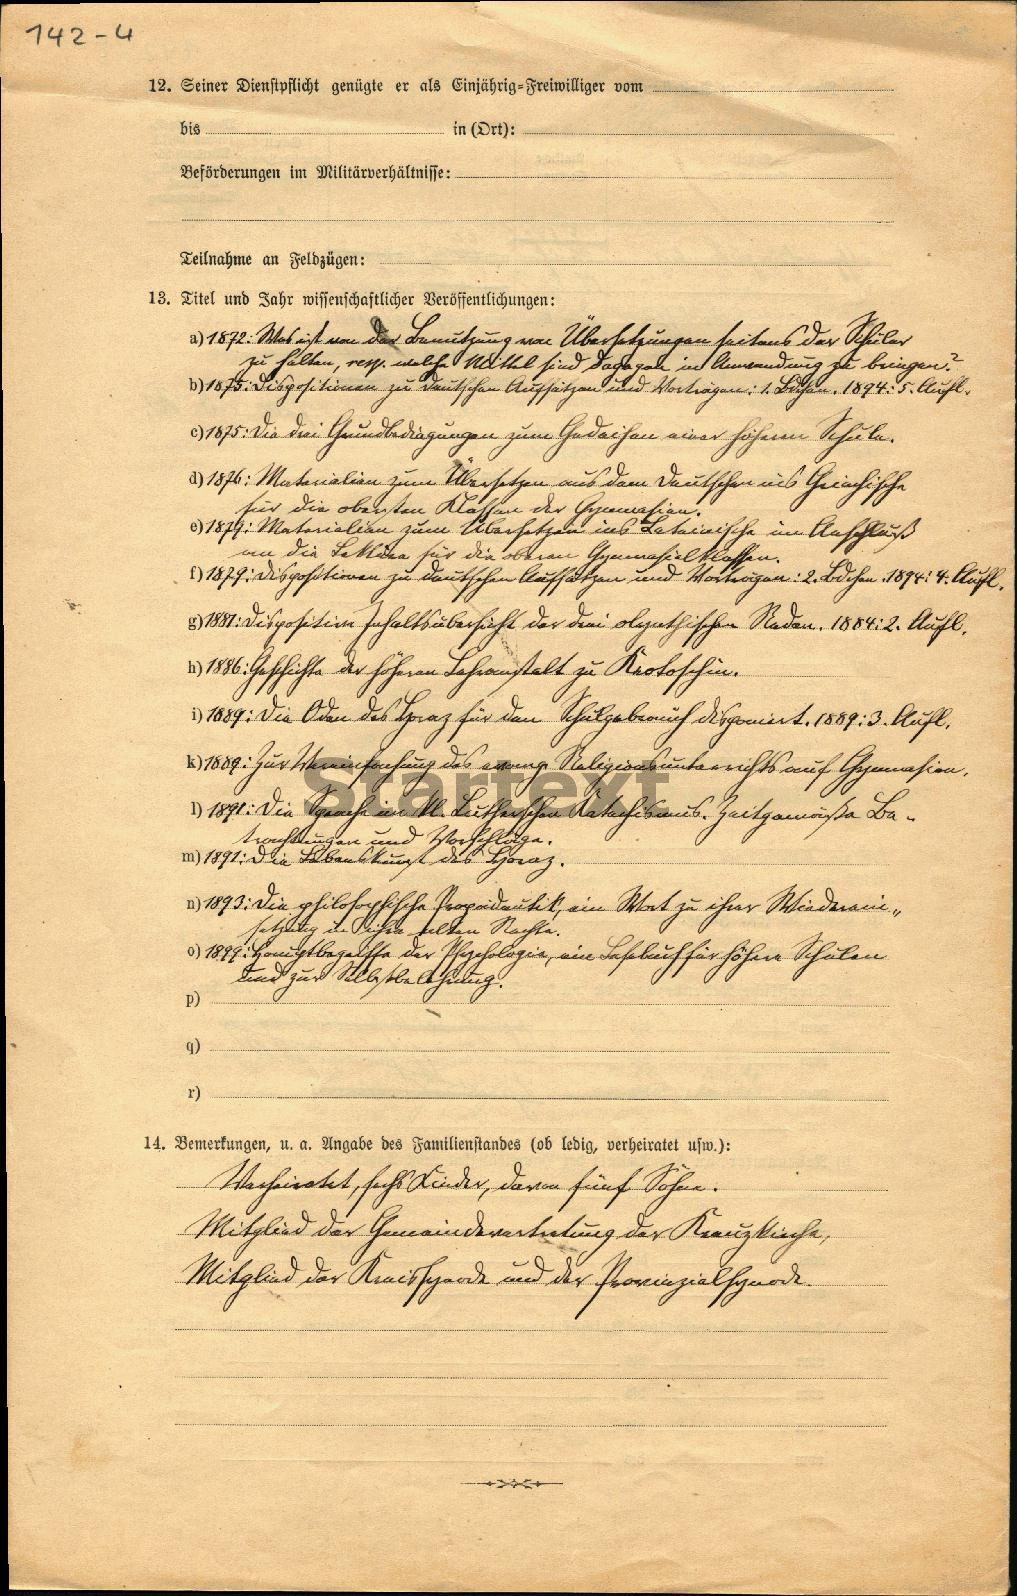 142-4
12. Seiner Dienstpflicht genügte er als Einjährig-Freiwilliger vom
bis in (Ort):
Beförderungen im Militärverhältnisse:
Teilnahme an Feldzügen:
13. Titel und Jahr wissenschaftlicher Veröffentlichungen:
a) 1872: Was ist von der Benutzung von Übersetzungen seitens der Schüler
zu halten, resp. welche Mittel sind dagegen in Anwendung zu bringen?
b) 1875: Dispositionen zu deutschen Aufsätzen und Vorträgen: 1. Bdchen. 1894: 5. Aufl.
c) 1875: Die drei Grundbedingungen zum Gedeihen einer höheren Schule.
d) 1876: Materialien zum Übersetzen aus dem Deutschen ins Griechische
für die obersten Klassen der Gymnasien.
e) 1877: Materialien zum Übersetzen ins Lateinische im Anschluß
an die Lektüre für die oberen Gymnasialklassen.
f) 1879: Dispositionen zu deutschen Aufsätzen und Vorträgen: 2. Bdchen. 1894: 4. Aufl.
g) 1881: Dispositive Inhaltsübersicht der drei olynthischen Reden. 1884: 2. Aufl.
h) 1886: Geschichte der höheren Lehranstalt zu Krotoschin.
i) 1889: Die Oden des Horaz für den Schulgebrauch disponiert. 1889: 3. Aufl.
k) 1889: Zur Vereinfachung des evang. Religionsunterrichts auf Gymnasien.
Startext
l) 1891: Die Sprache im kl. Lutherschen Katechismus. Zeitgemäße Be-
trachtungen und Vorschläge.
m) 1891: Die Lebenskunst des Horaz.
n) 1893: Die philosophische Propädeutik, ein Wort zu ihrer Wiederein-
setzung in ihre alten Rechte.
o) 1899: Hauptbegriffe der Psychologie, ein Lesebuch für höhere Schulen
und zur Selbstbelehrung.
p)
q)
r)
14. Bemerkungen, u. a. Angabe des Familienstandes (ob ledig, verheiratet usw.):
Verheiratet, sechs Kinder, davon fünf Söhne.
Mitglied der Gemeindevertretung der Kreuzkirche,
Mitglied der Kreissynode und der Provinzialsynode.